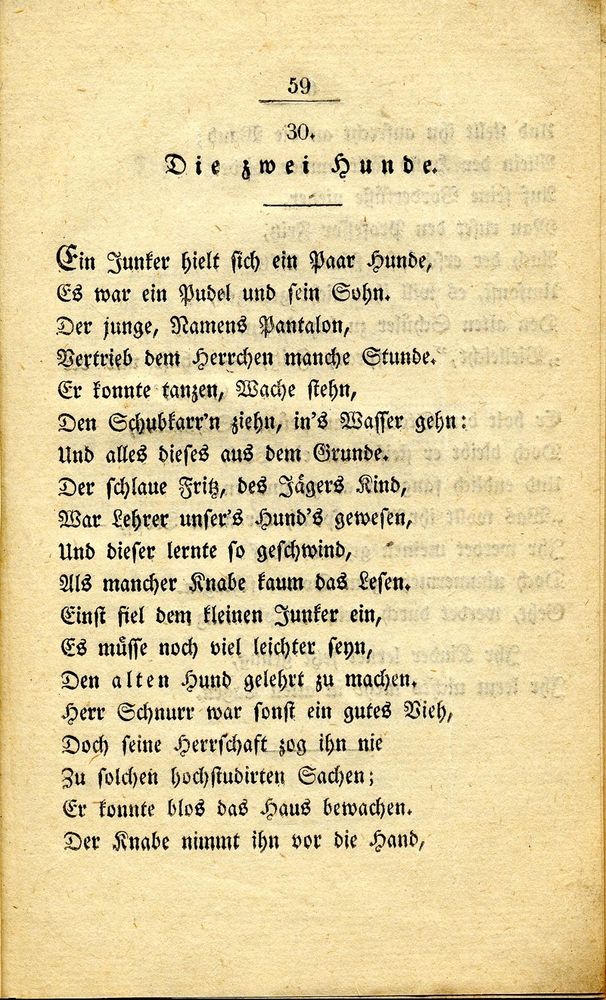 59
30.
Die zwei Hunde.
Ein Junker hielt sich ein Paar Hunde,
Es war ein Pudel und sein Sohn.
Der junge, Namens Pantalon,
Vertrieb dem Herrchen manche Stunde.
Er konnte tanzen, Wache stehn,
Den Schubkarr'n ziehn, in's Wasser gehn:
Und alles dieses aus dem Grunde.
Der schlaue Fritz, des Jägers Kind,
War Lehrer unser's Hund's gewesen,
Und dieser lernte so geschwind,
Als mancher Knabe kaum das Lesen.
Einst fiel dem kleinen Junker ein,
Es müsse noch viel leichter seyn,
Den alten Hund gelehrt zu machen.
Herr Schnurr war sonst ein gutes Vieh,
Doch seine Herrschaft zog ihn nie
Zu solchen hochstudirten Sachen;
Er konnte blos das Haus bewachen.
Der Knabe nimmt ihn vor die Hand,